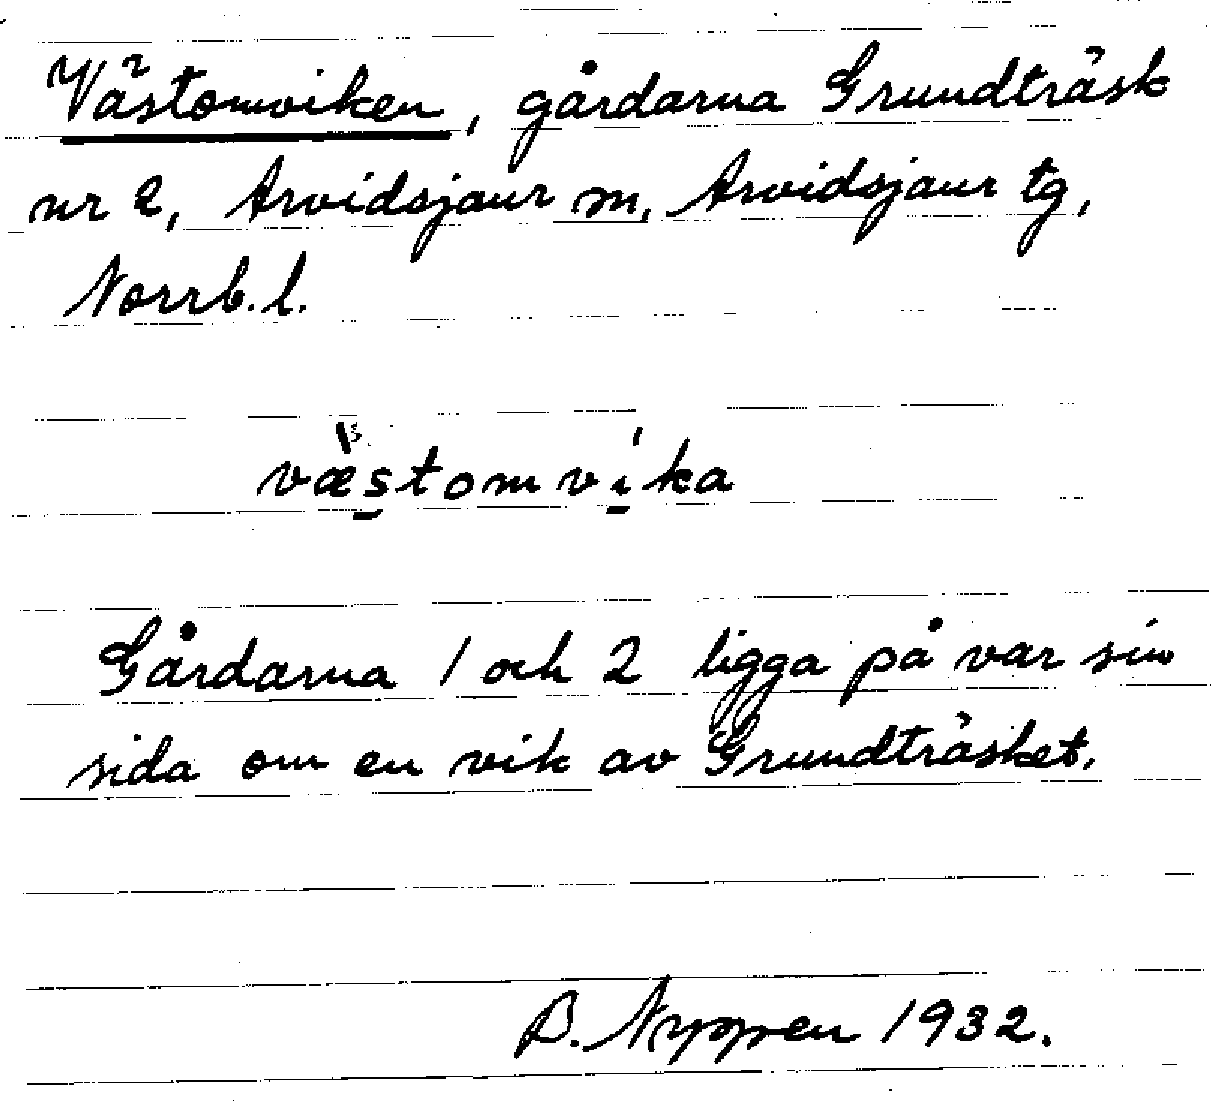 Västomviken, gårdarna Grundträsk
nr 2, Arvidsjaur sn, Arvidsjaur tg,
Norrb. l.
væstomvika
Gårdarna 1 och 2 ligga på var sin
sida om en vik av Grundträsket.
B. Nyppen 1932.